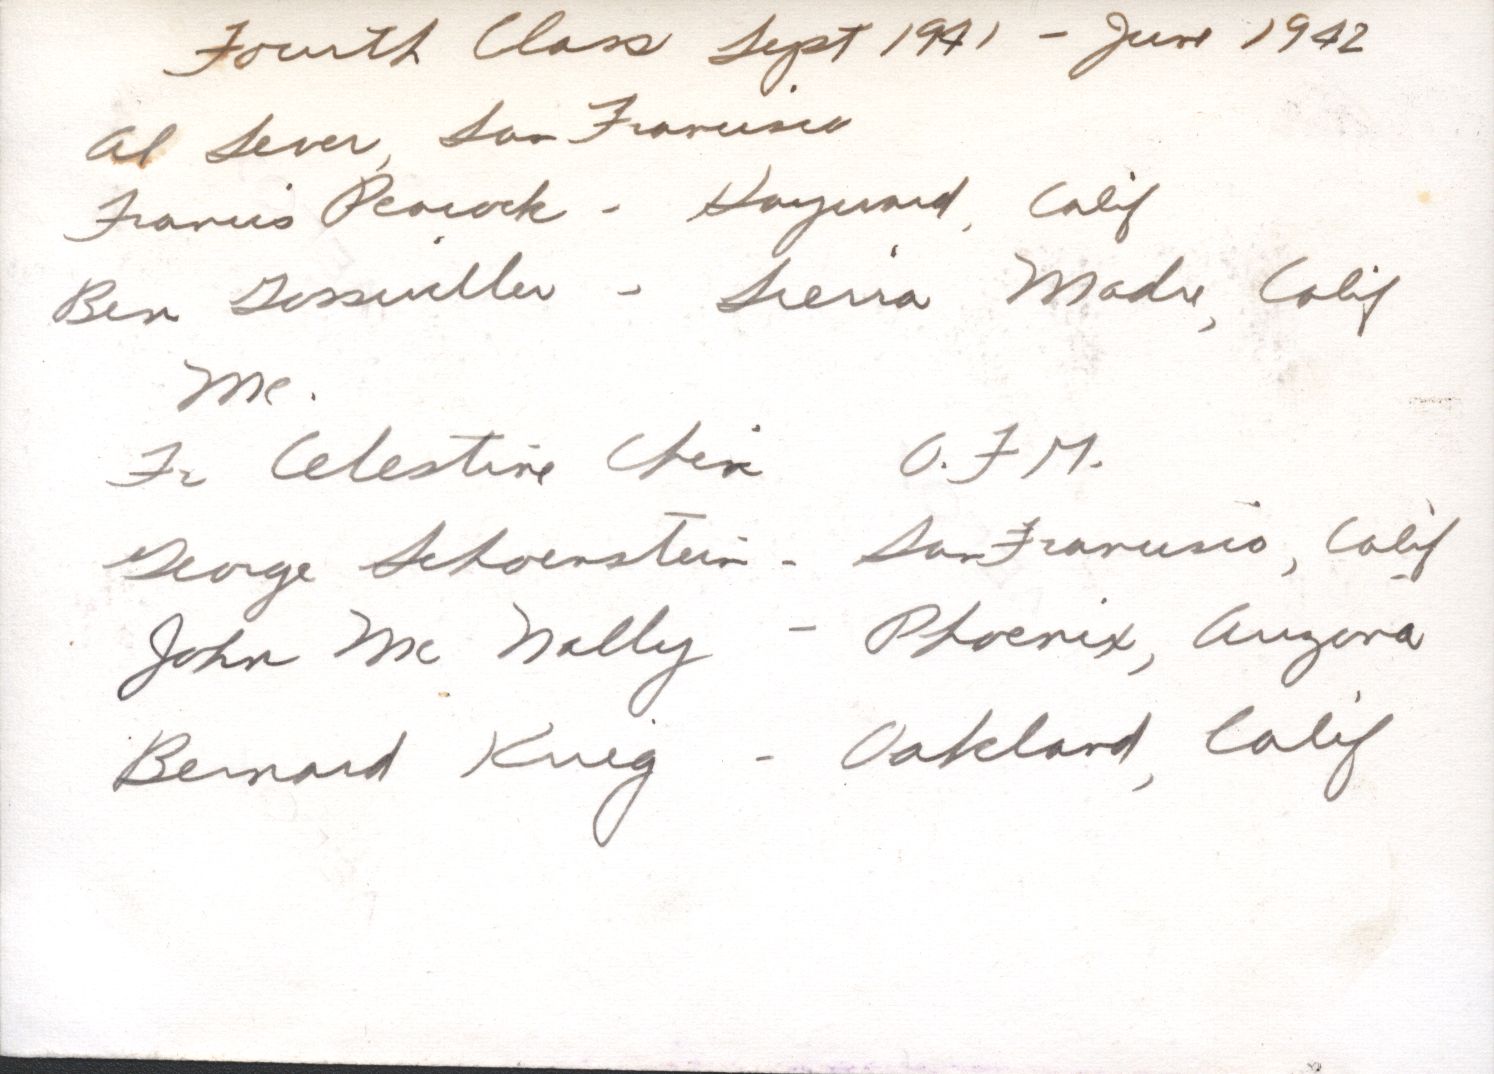 Fourth Class Sept 1941 - June 1942
Al Sever, San Francisco
Francis Peacock - Hayward, Calif
Ben - Sierra Madre, Calif
Me.
Fr Celestine Chin O.F.M.
George Schoenstein - San Francisco, Calif
John Mc Nally - Phoenix, Arizona
Bernard Krieg - Oakland, Calif